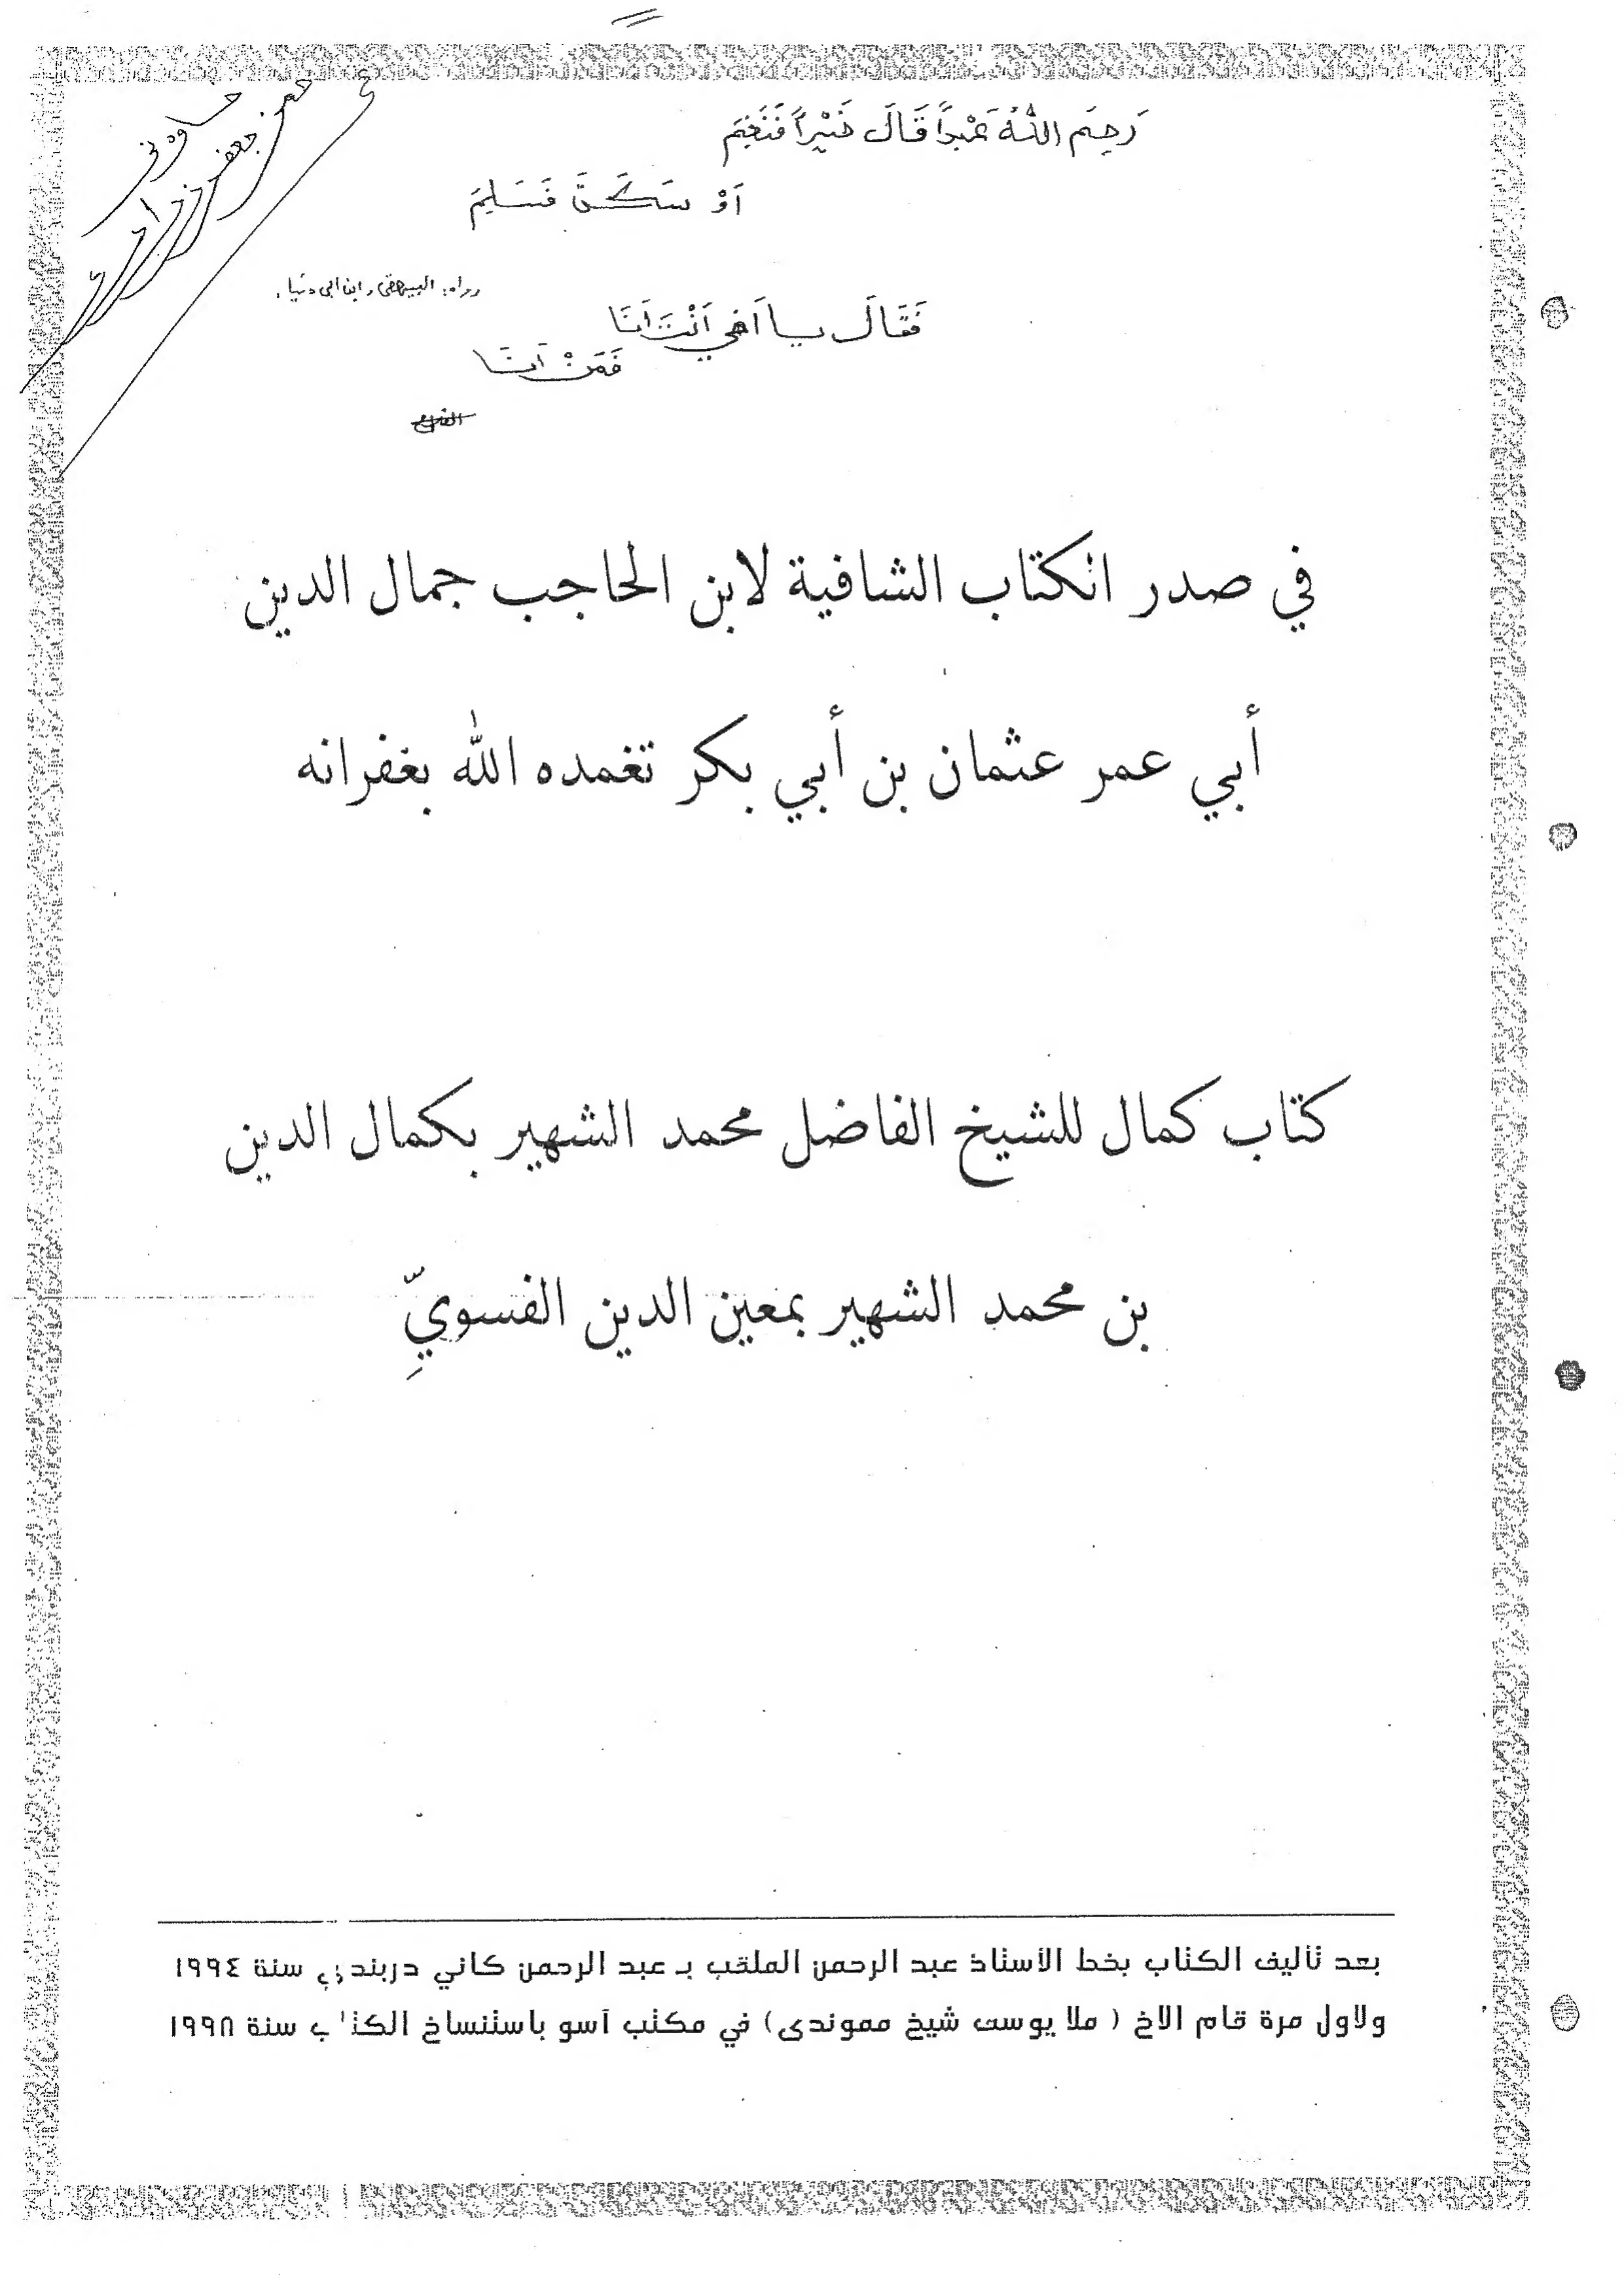 رَحِمَ اللهُ عَبْداً قَالَ خَيْراً فَغَنِمَ
اَوْ سَكَتَ فَسَلِمَ
رواه: البيهقي وابن ابي دنيا.
فَقَالَ يا اَخي اَنْتَ اَنَا
فَمَنْ اَنَا
في صدر الكتاب الشافية لابن الحاجب جمال الدين
أبي عمر عثمان بن أبي بكر تغمده الله بغفرانه
كتاب كمال للشيخ الفاضل محمد الشهير بكمال الدين
بن محمد الشهير بمعين الدين الفسويِّ
بعد تأليف الكتاب بخط الأستاذ عبد الرحمن الملقب بـ عبد الرحمن كاني دربندي سنة ١٩٩٤
ولاول مرة قام الاخ ( ملا يوسف شيخ مموندى) في مكتب آسو باستنساخ الكتاب سنة ١٩٩٨